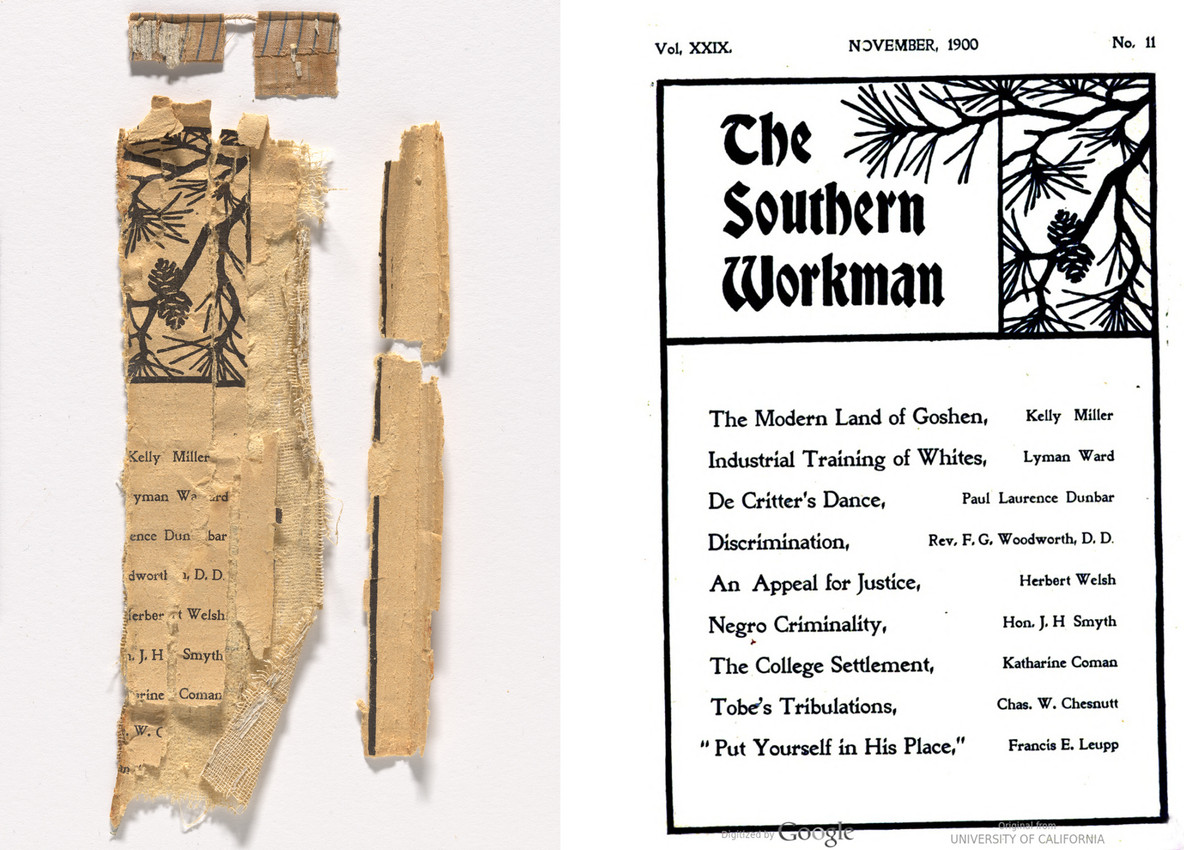 Kelly Miller
yman Wa ard
ence Dun bar
dworth n, D. D.
Herber rt Welsh
. J. H Smyth
arine Coman
. W. C
Vol. XXIX. NOVEMBER, 1900 No. 11
The
Southern
Workman
The Modern Land of Goshen, Kelly Miller
Industrial Training of Whites, Lyman Ward
De Critter's Dance, Paul Laurence Dunbar
Discrimination, Rev. F. G. Woodworth, D. D.
An Appeal for Justice, Herbert Welsh
Negro Criminality, Hon. J. H Smyth
The College Settlement, Katharine Coman
Tobe's Tribulations, Chas. W. Chesnutt
"Put Yourself in His Place," Francis E. Leupp
Digitized by Google
Original from
UNIVERSITY OF CALIFORNIA